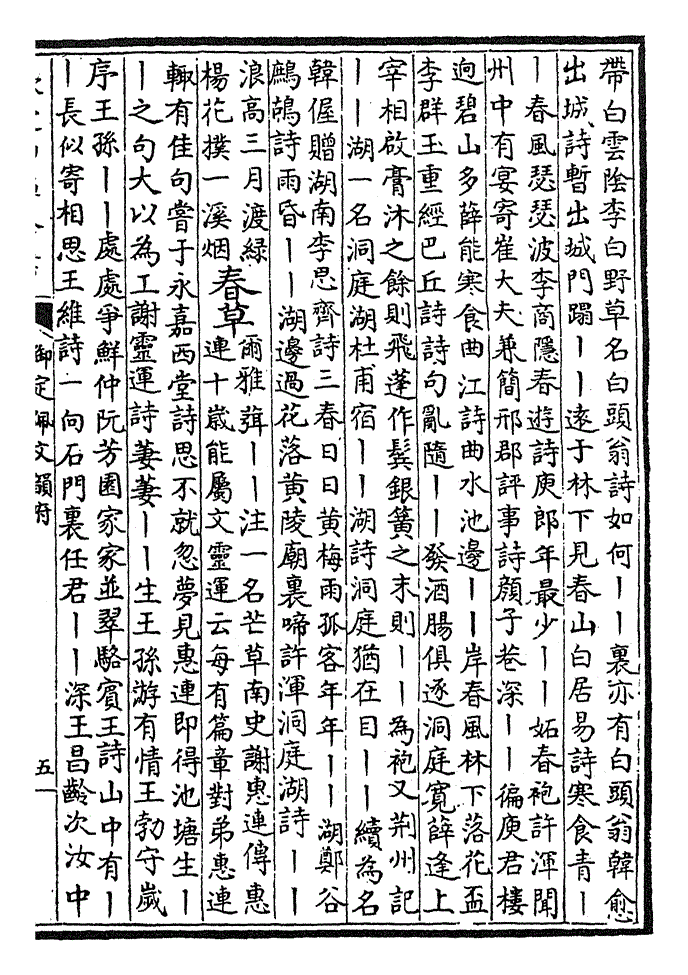 帶白雲陰李白野草名白頭翁詩如何丨丨裏亦有白頭翁韓愈
出城詩暫出城門蹋丨丨逺于林下見春山白居易詩寒食青丨
丨春風瑟瑟波李商隱春遊詩庾郎年最少丨丨妬春袍許渾聞
州中有宴寄崔大夫兼簡邢郡評事詩顔子巷深丨丨徧庾君樓
逈碧山多薛能寒食曲江詩曲水池邊丨丨岸春風林下落花盃
李群玉重經巴丘詩詩句亂隨丨丨發酒腸俱逐洞庭寛薛逢上
宰相啟膏沐之餘則飛蓬作鬂銀簧之末則丨丨為袍又荆州記
丨丨湖一名洞庭湖杜甫宿丨丨湖詩洞庭猶在目丨丨續為名
韓偓贈湖南李思齊詩三春日日黄梅雨孤客年年丨丨湖鄭谷
鷓鴣詩雨昏丨丨湖邊過花落黄陵廟裏啼許渾洞庭湖詩丨丨
浪高三月渡緑
楊花撲一溪烟
春草
爾雅葞丨丨注一名芒草南史謝惠連傳惠
連十歳能屬文靈運云每有篇章對弟惠連
輙有佳句嘗于永嘉西堂詩思不就忽夢見惠連即得池塘生丨
丨之句大以為工謝靈運詩萋萋丨丨生王孫游有情王勃守嵗
序王孫丨丨處處爭鮮仲阮芳園家家並翠駱賓王詩山中有丨
丨長似寄相思王維詩一向石門裏任君丨丨深王昌齡次汝中
御定佩文韻府
五